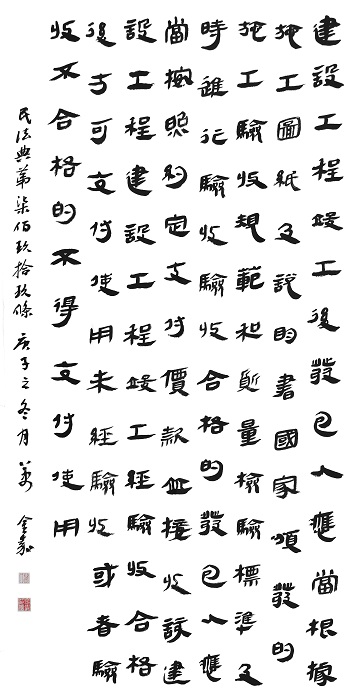 建設工程竣工後發包人應當根據
施工圖紙及說明書國家頒發的
施工驗收規範和質量檢驗標準及
時進行驗收驗收合格的發包人應
當按照約定支付價款並接收該建
設工程建設工程竣工經驗收合格
後方可交付使用未經驗收或者驗
收不合格的不得交付使用
民法典第柒佰玖拾玖條 庚子之冬月